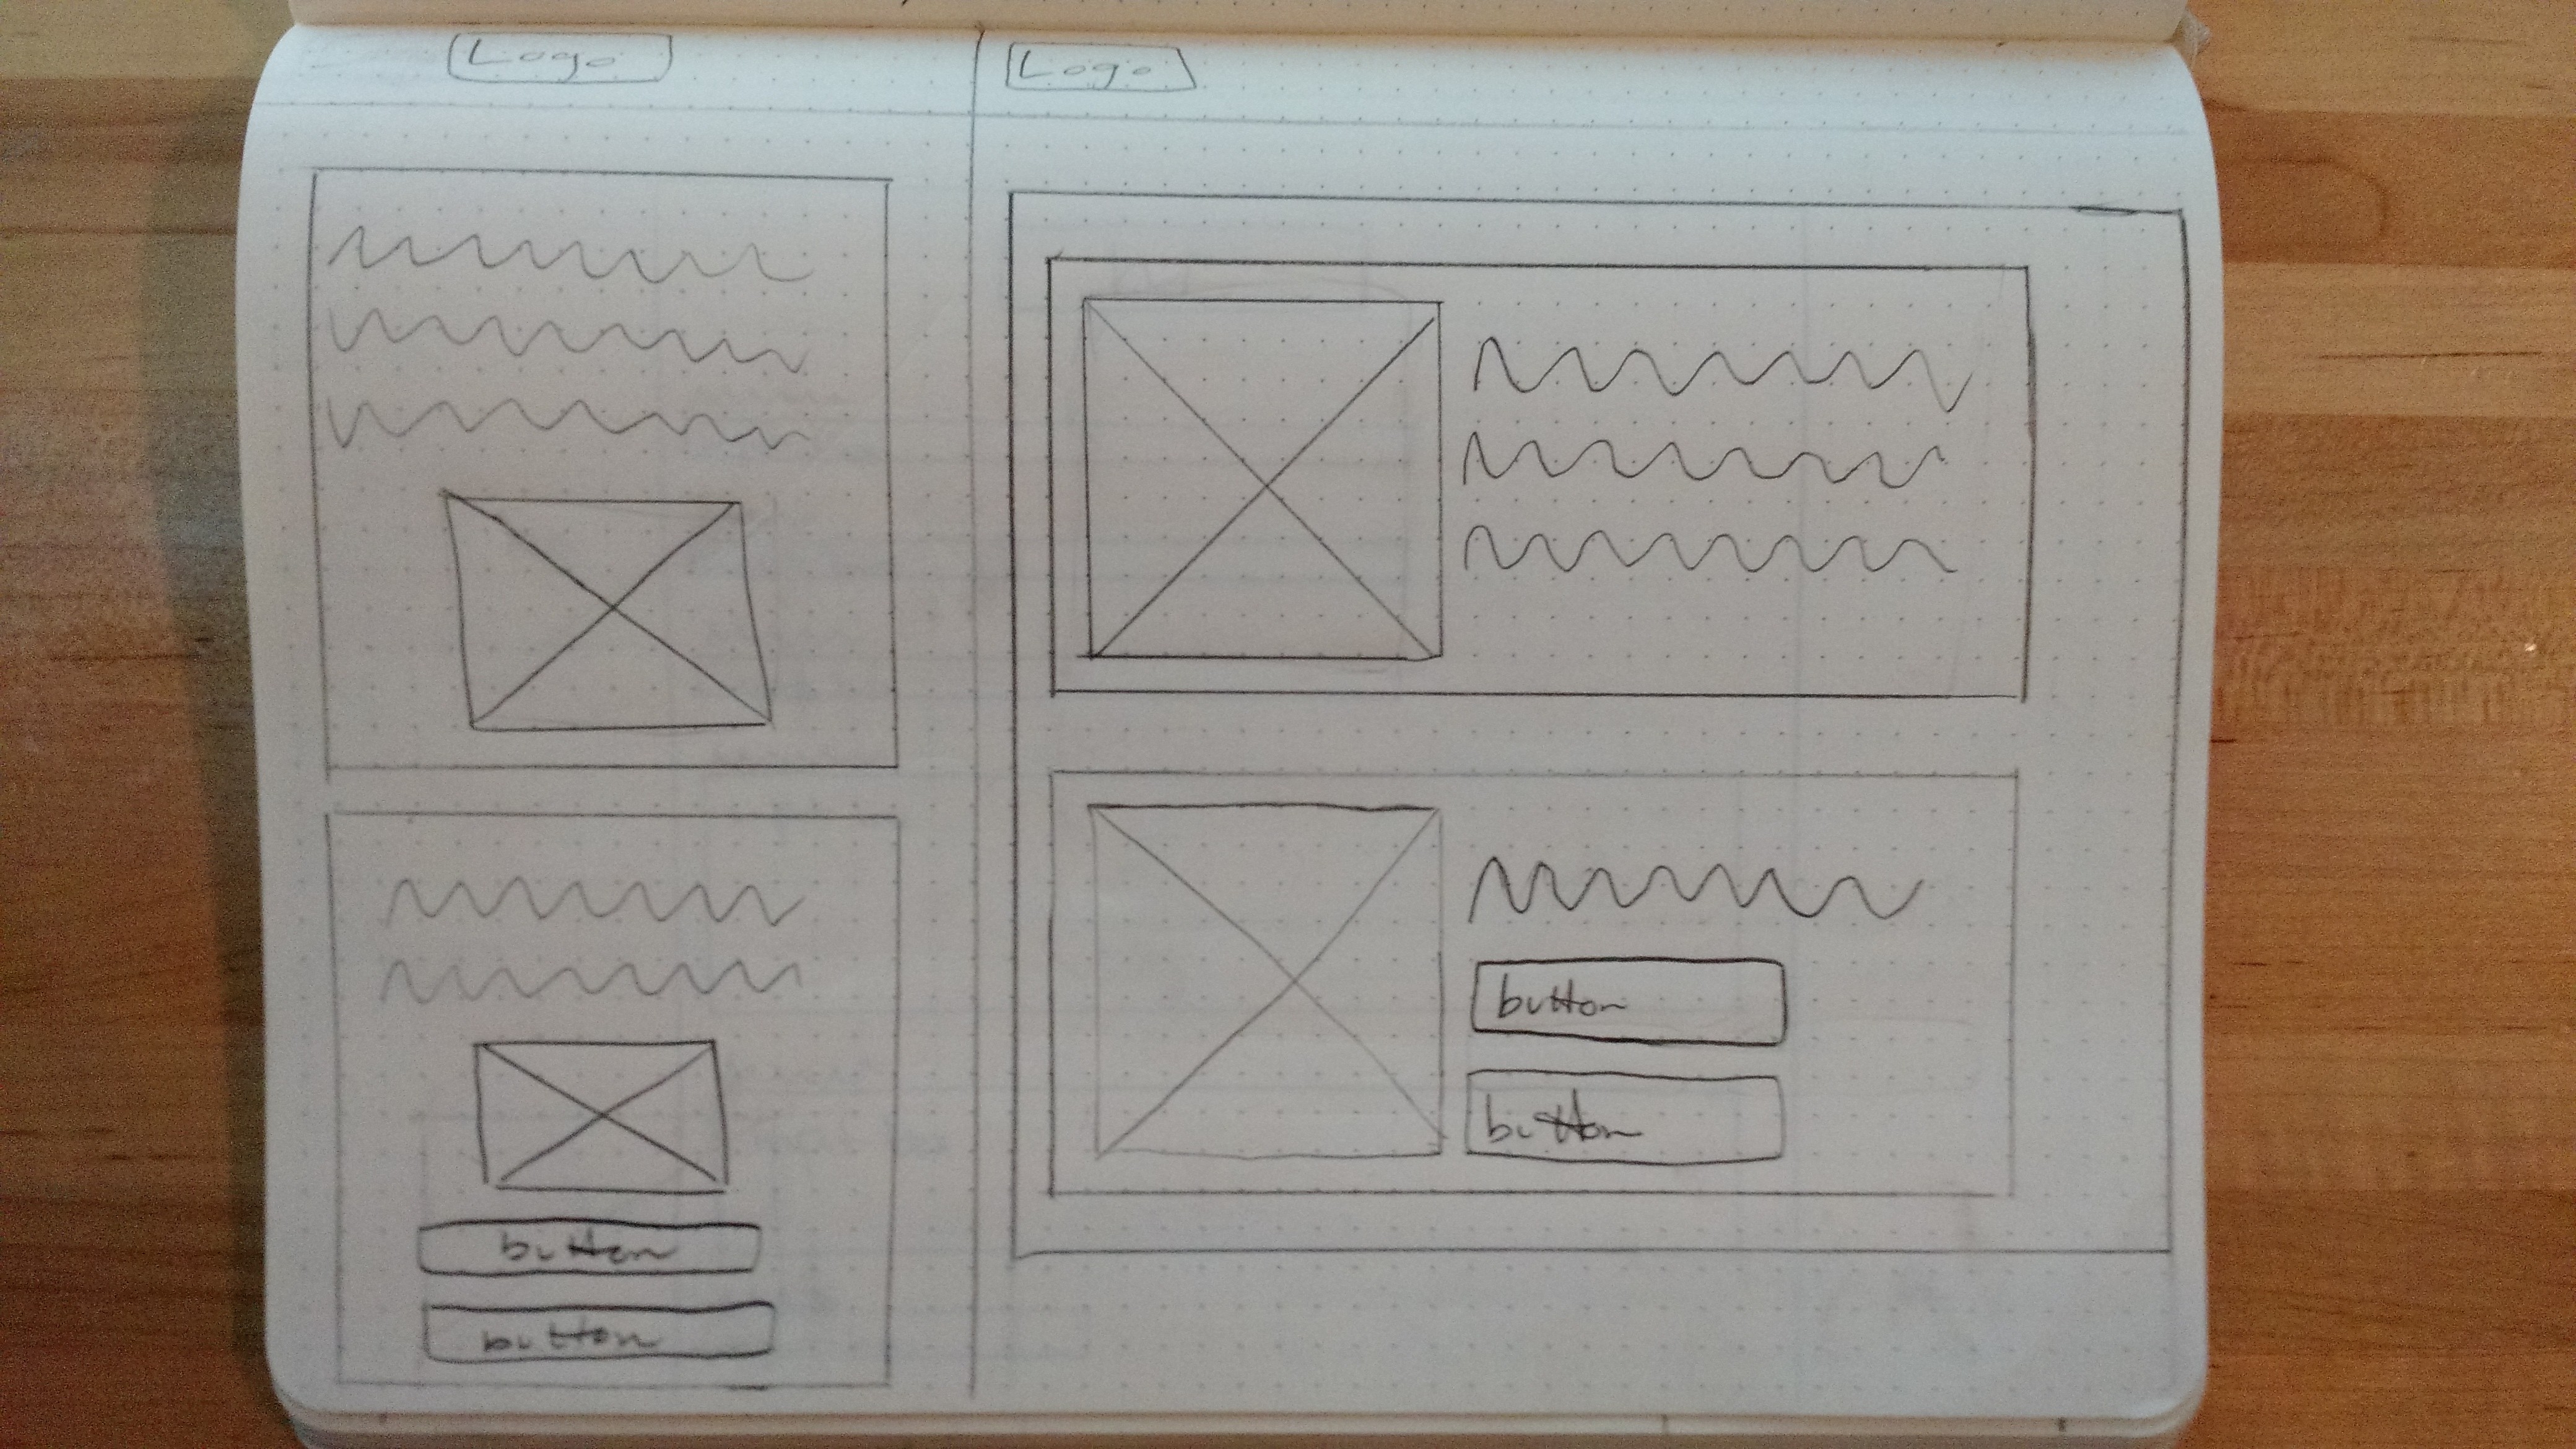 Logo
button
button
Logo
button
button